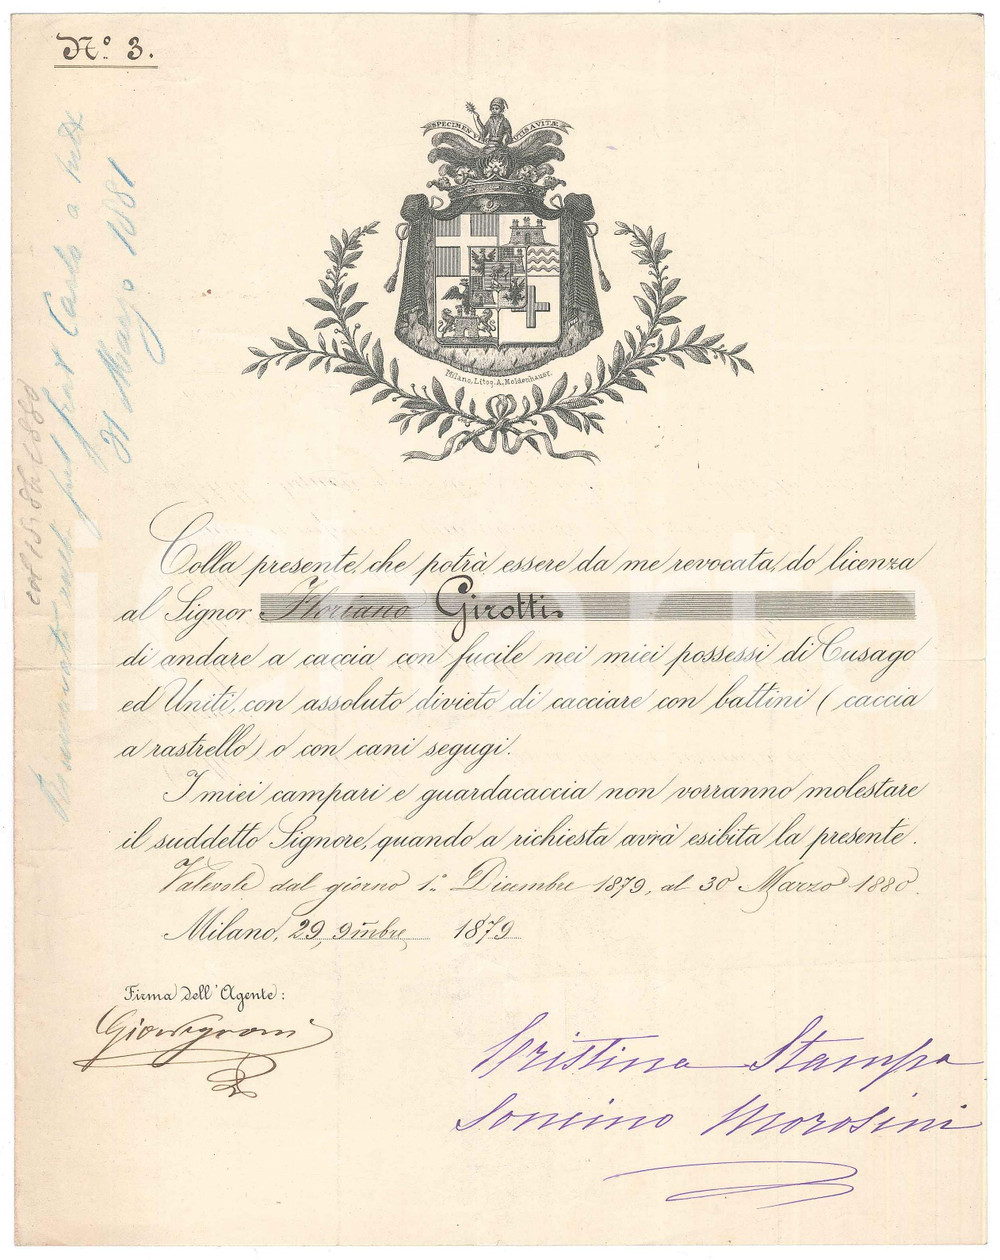 Nº 3.
SPECIMEN VITÆ
Milano, Litog. A. Meldenhauer.
Colla presente, che potrà essere da me revocata, do licenza
al Signor Floriano Girotti
di andare a caccia con fucile nei miei possessi di Cusago
ed Uniti, con assoluto divieto di cacciare con battini (caccia
a rastrello) o con cani segugi.
I miei campari e guardacaccia non vorranno molestare
il suddetto Signore, quando a richiesta avrà esibita la presente.
Valevole dal giorno 1º Dicembre 1879, al 30 Marzo 1880.
Milano, 29, 9mbre, 1879
Firma dell'Agente:
Cristina Stampa
Soncino Morosini
Carlo a
31 Marzo 1881
1880